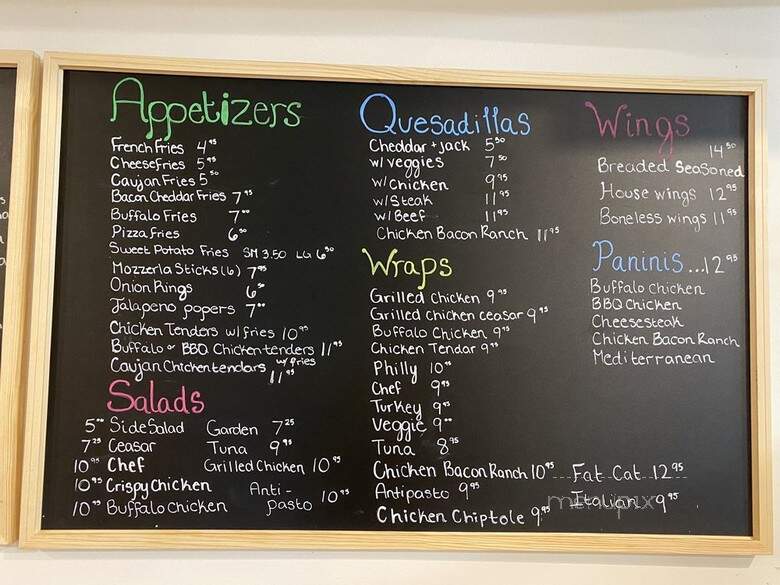 Appetizers
French Fries 4.95
Cheese fries 5.95
Caujan Fries 5.50
Bacon Cheddar Fries 7.95
Buffalo Fries 7.00
Pizza fries 6.50
Sweet Potato Fries SM 3.50 LG 6.50
Mozzerla Sticks (6) 7.95
Onion Rings 6.50
Jalapeno poppers 7.00
Chicken Tenders w/ fries 10.95
Buffalo or BBQ Chicken tenders 11.95
w/ fries
Caujan Chicken tendars 11.95
Salads
5.00 Side Salad Garden 7.25
7.25 Ceasar Tuna 9.95
10.95 Chef Grilled Chicken 10.95
10.95 Crispy Chicken
10.95 Buffalo Chicken Anti-pasto 10.95
Quesadillas
Cheddar + jack 5.50
w/ veggies 7.50
w/ chicken 9.95
w/ Steak 11.95
w/ Beef 11.95
Chicken Bacon Ranch 11.95
Wraps
Grilled Chicken 9.95
Grilled chicken ceasar 9.95
Buffalo Chicken 9.95
Chicken Tendar 9.95
Philly 10.95
Chef 9.95
Turkey 9.95
Veggie 9.00
Tuna 8.95
Chicken Bacon Ranch 10.95
Antipasto 9.95
Chicken Chiptole 9.95
Fat Cat 12.95
Italian 9.95
Wings
14.50
Breaded Seasoned
House wings 12.95
Boneless wings 11.95
Paninis...12.95
Buffalo Chicken
BBQ Chicken
Cheesesteak
Chicken Bacon Ranch
Mediterranean
menupix